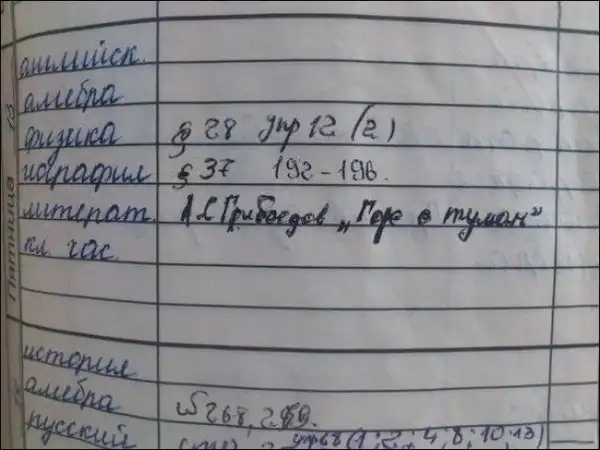 Пятница 13
английск.
алгебра
физика § 28 упр 12 (2)
география § 37 192-196.
литерат. А.С Грибоедов „Горе о туман"
кл. час.
история
алгебра № 268, 269.
русский упр68 (1; 2; 4; 8; 10; 13)